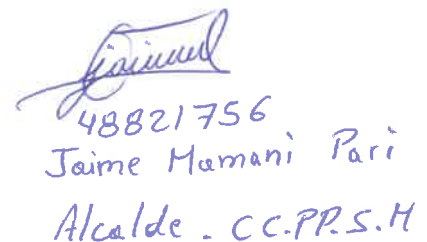 48821756
Jaime Mamani Pari
Alcalde. CC.PP.S.M